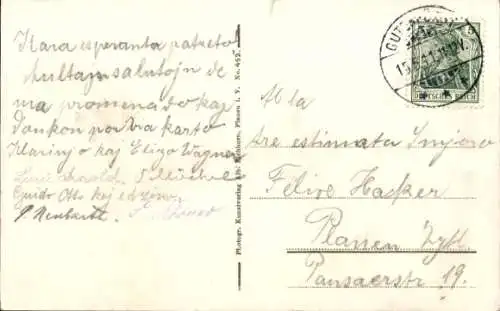 Kara esperanta patreto
Multajn salutojn de
nia promenado kaj
dankon por Via karto
Klarinjo kaj Elizo Wagner
Guido Otto kaj edzino
P. Neubert
Photogr. Kunstverlag Plauen i. V. No. 455.
DEUTSCHES REICH
Al la
tre estimata Sinjoro
Felixe Hacker
Plauen Vgtl.
Pausaerstr. 19.